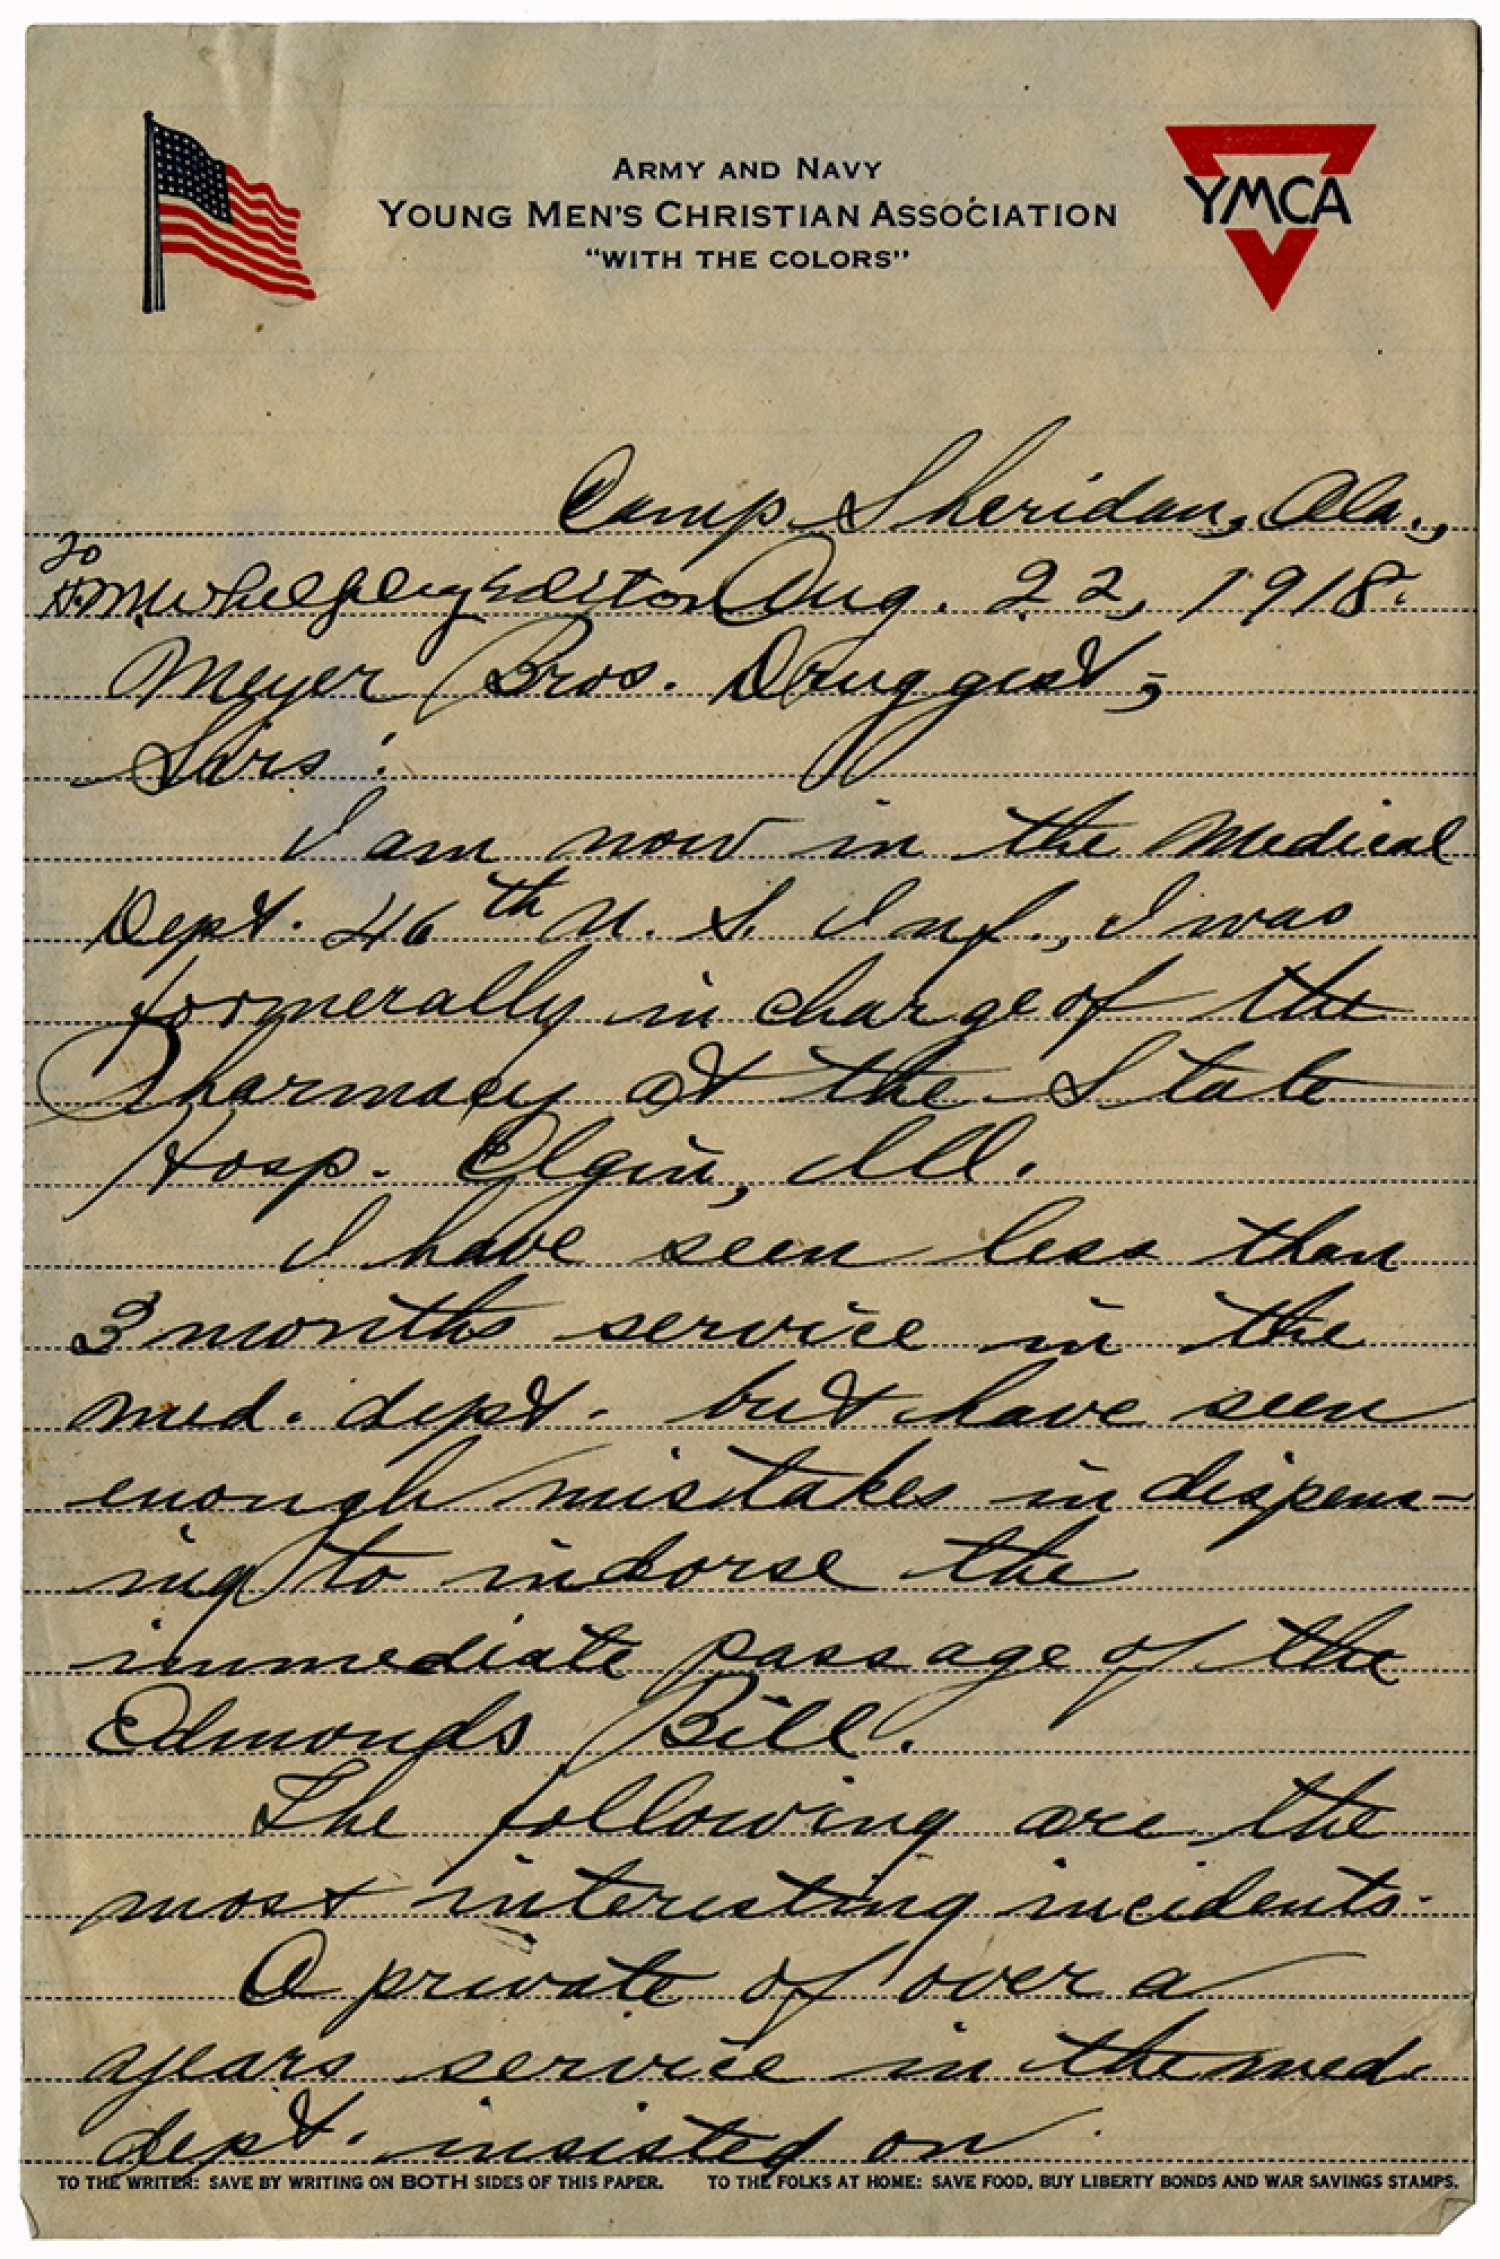 ARMY AND NAVY
YOUNG MEN'S CHRISTIAN ASSOCIATION
"WITH THE COLORS"
YMCA
Camp Sheridan, Ala.,
To
H.M. Whelpley Editor Aug. 22, 1918.
Meyer Bros. Druggist,
Sirs:
I am now in the Medical
Dept. 46th U. S. Inf., I was
formerally in charge of the
Pharmacy at the State
Hosp. Elgin, Ill.
I have seen less than
3 months service in the
med. dept. but have seen
enough mistakes in dispens-
ing to indorse the
immediate passage of the
Edmonds Bill.
The following are the
most interesting incidents.
A private of over a
years service in the med.
dept. insisted on
TO THE WRITER: SAVE BY WRITING ON BOTH SIDES OF THIS PAPER. TO THE FOLKS AT HOME: SAVE FOOD, BUY LIBERTY BONDS AND WAR SAVINGS STAMPS.